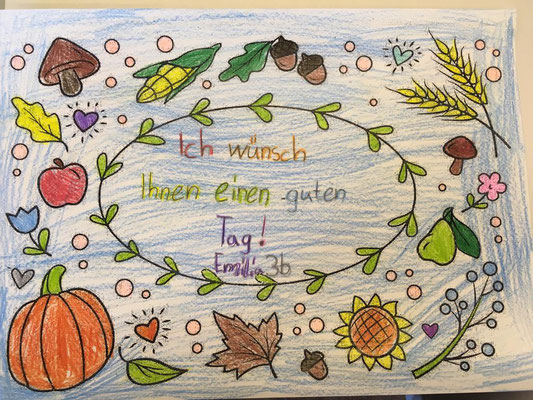 Ich wünsch
Ihnen einen guten
Tag!
Emilia 3b